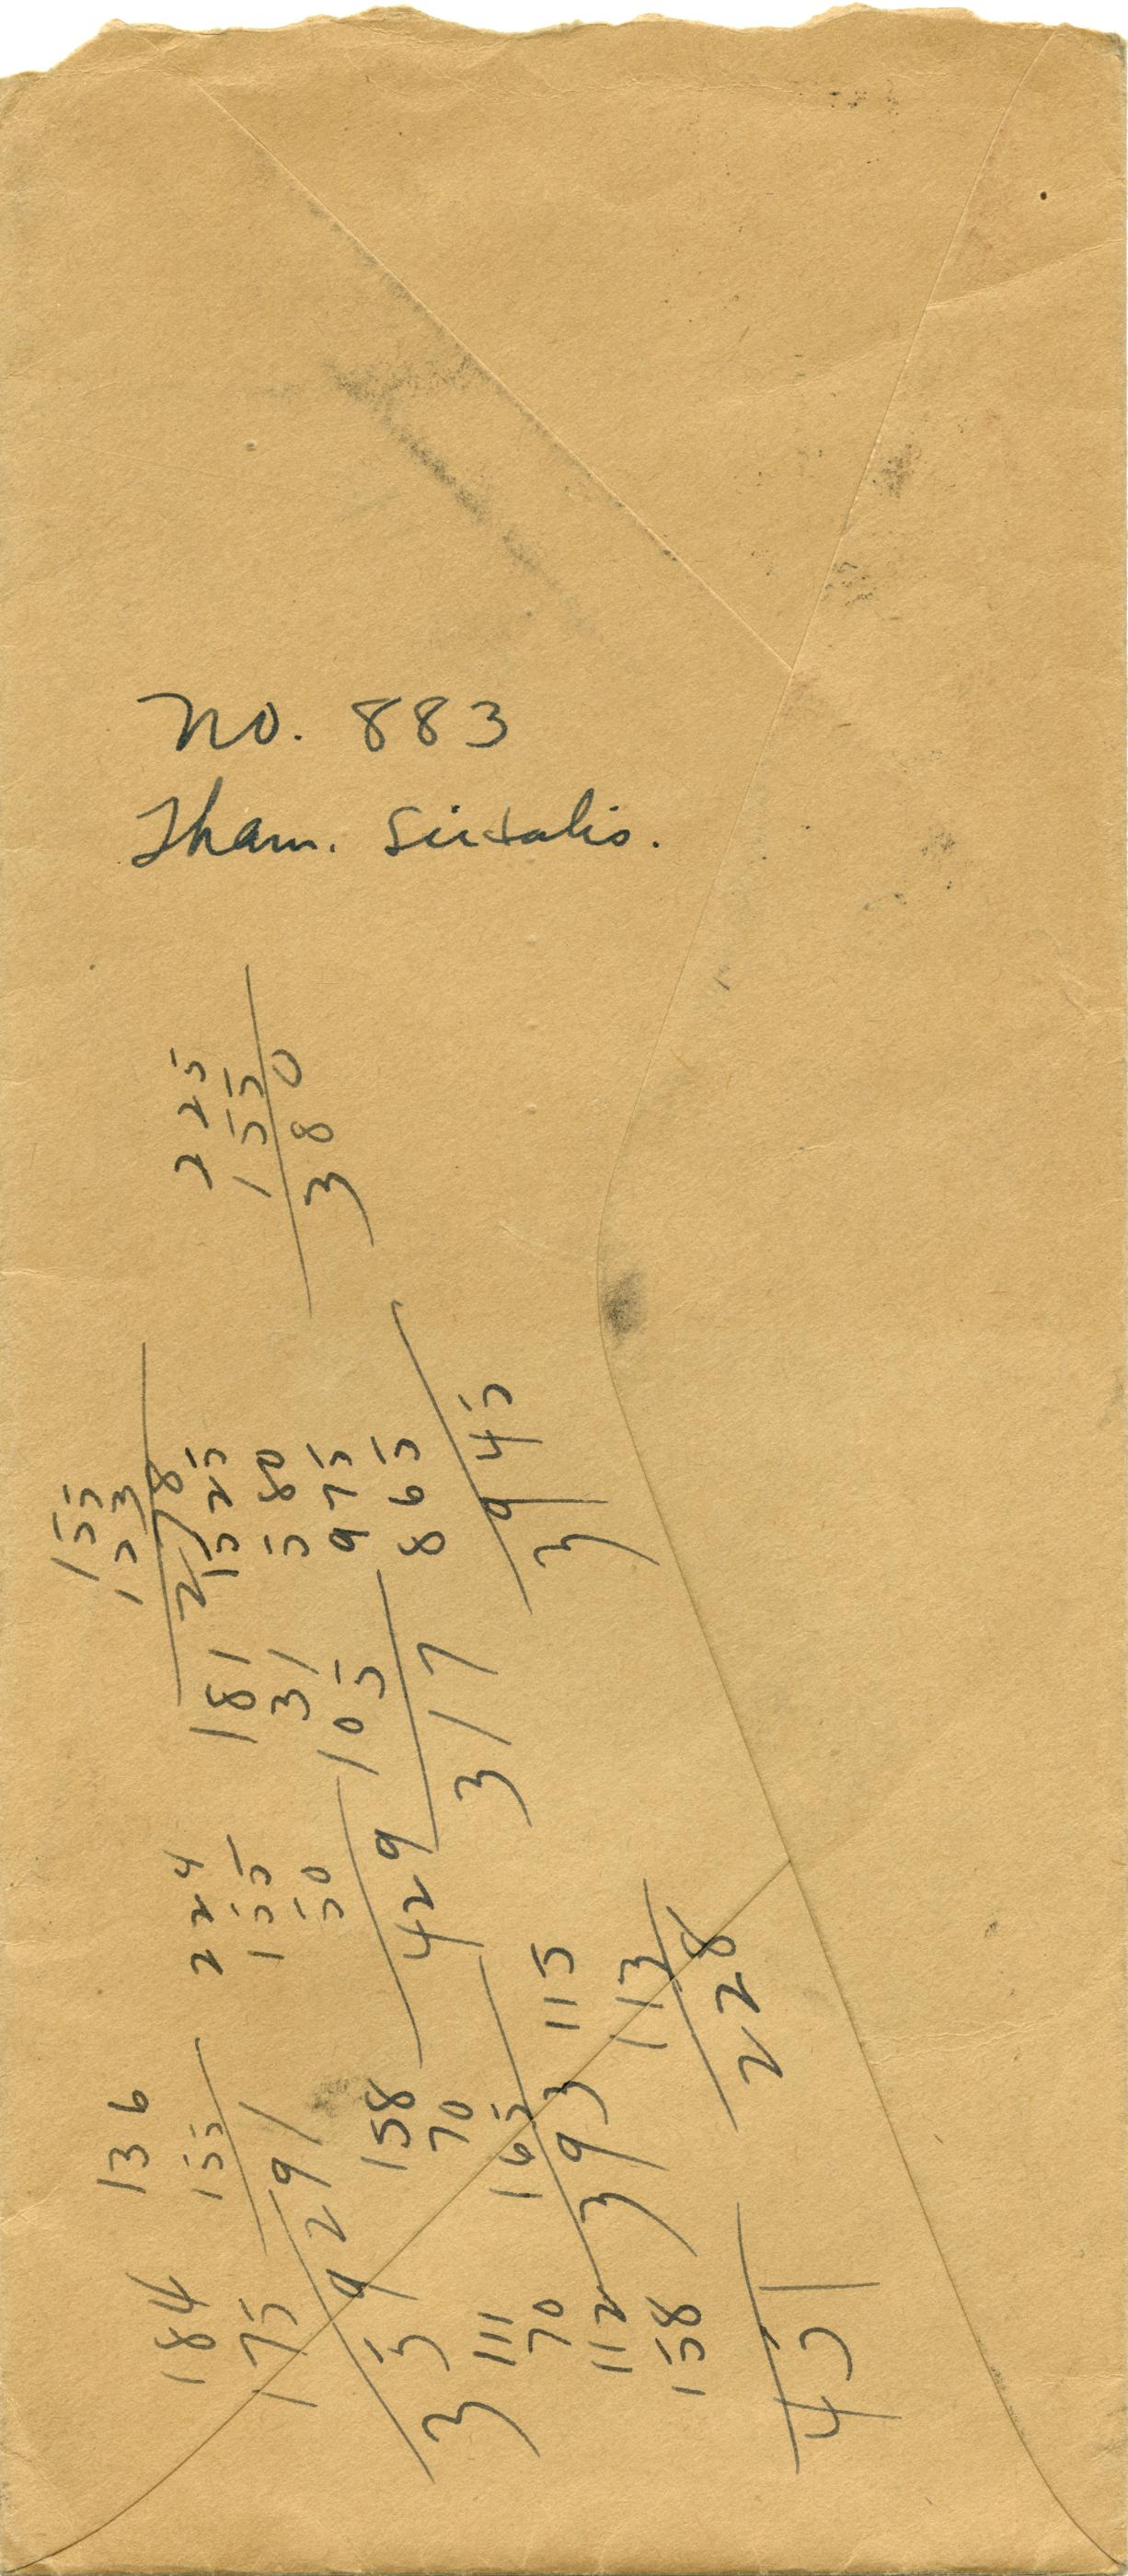 No. 883
Tham. Sirtalis.
184
175
359
136
155
291
111
70
112
158
451
158
70
165
393
224
155
50
429
115
113
228
181
31
105
317
155
123
278
1525
580
975
865
3945
225
155
380